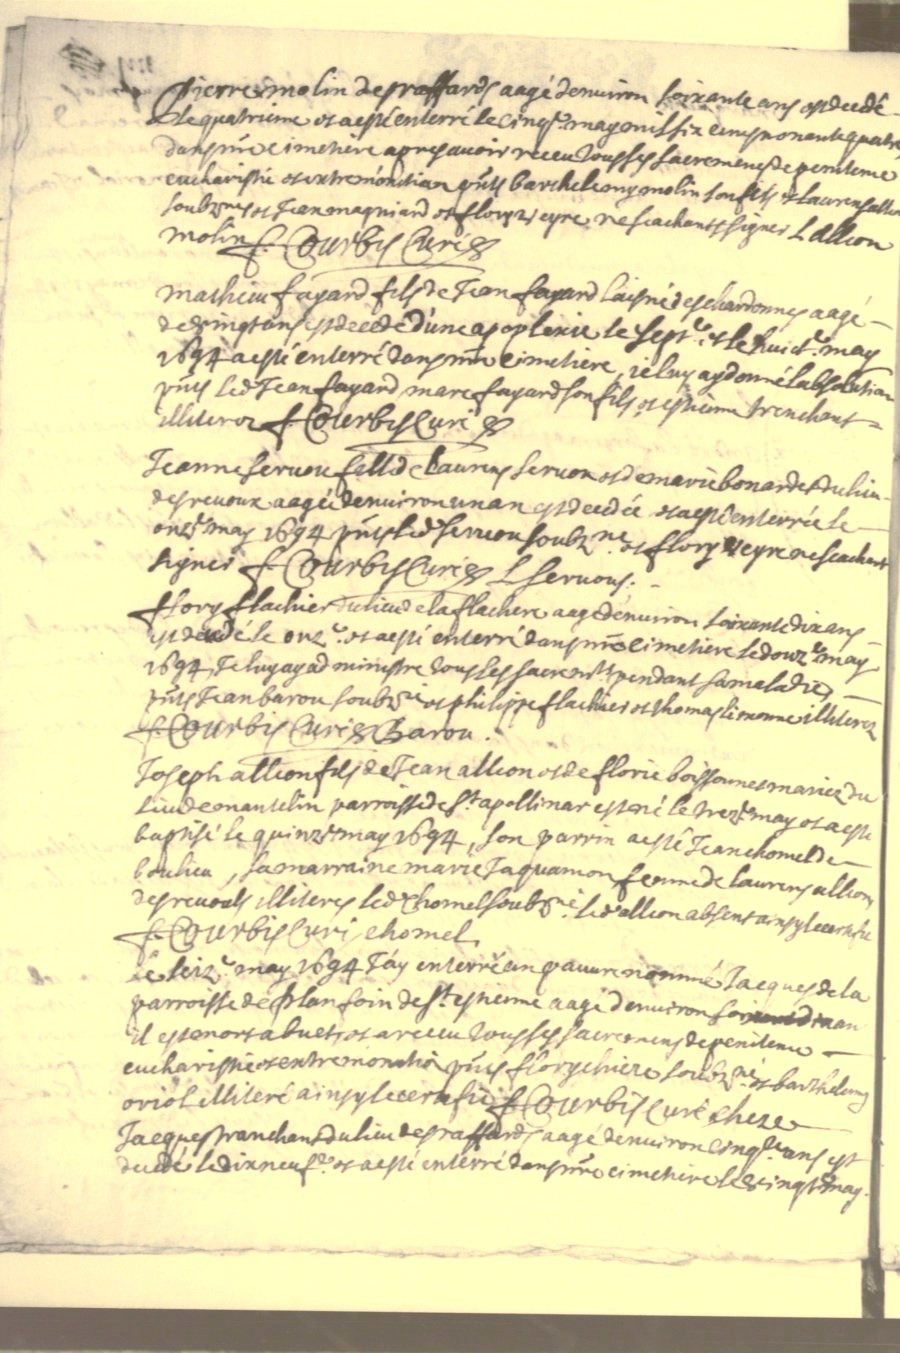 Pierre molin des raffards aagé denviron soixante ans est decedé
le quatrieme et a esté enterré le cinqe. may mil six cens nonante quatre
dans nre cimetiere apres avoir receu tous ses sacremens de penitence
eucharistie et extremonction pnts barthelemy molin son fils et laurens allion
soubznes et Jean magniard et flory veyre ne scachants signer Lallion
molin f. Courbis Curé
mathieu fayard fils de Jean fayard laisné des chardonnes aagé
de vingt ans est decedé dune apoplexie le septe. et le huicte. may
1694 a esté enterré dans nre cimetiere, ie luy ay donné labsolution
pnts led Jean fayard marc fayard son fils et estienne trenchant
illiterez f. Courbis Curé
Jeanne servou fille de Laurens servou et de marie bonardet du lieu
des revoux aagée denviron un an est decedée et a esté enterrée le
onze. may 1694 pnts led servou soubzne. et flory veyre ne scachant
signer f. Courbis Curé L Servous.
flory flachier du lieu de la flachere aagé denviron soixante dix ans
est decedé le onze. et a esté enterré dans nre cimetiere le douze. may
1694, Je luy ay administre tous les sacremts pendant sa maladie,
pnts Jean barou soubzné et philippe flachier et thomas limonne illiterez
f. Courbis Curé Barou.
Joseph allion fils de Jean allion et de florie boissounet mariez du
lieu de nantelin parroisse de St apollinar est né le treze. may et a esté
baptisé le quinze. may 1694, son parrin a esté Jean chomel de
boulieu, sa marraine marie Jaquamon femme de laurens allion
des revouls illiteres led chomel soubzné. led allion absent ainsy le certifie
f. Courbis Curé chomel
Le seize. may 1694 Jay enterré un pauvre nommé Jacques de la
parroisse de Planfoin de St estienne aagé denviron un an
il est mort a buet, et a receu tous ses sacremens de penitence
eucharistie et extremonction pnts flory chieze soubzné. et barthelemy
oriol illiteré ainsy le certifie f Courbis Curé cheze
Jacques tranchant du lieu des raffards aagé denviron cinqte. ans est
decedé le dixneufe. et a esté enterré dans nre cimetiere le vingte may.